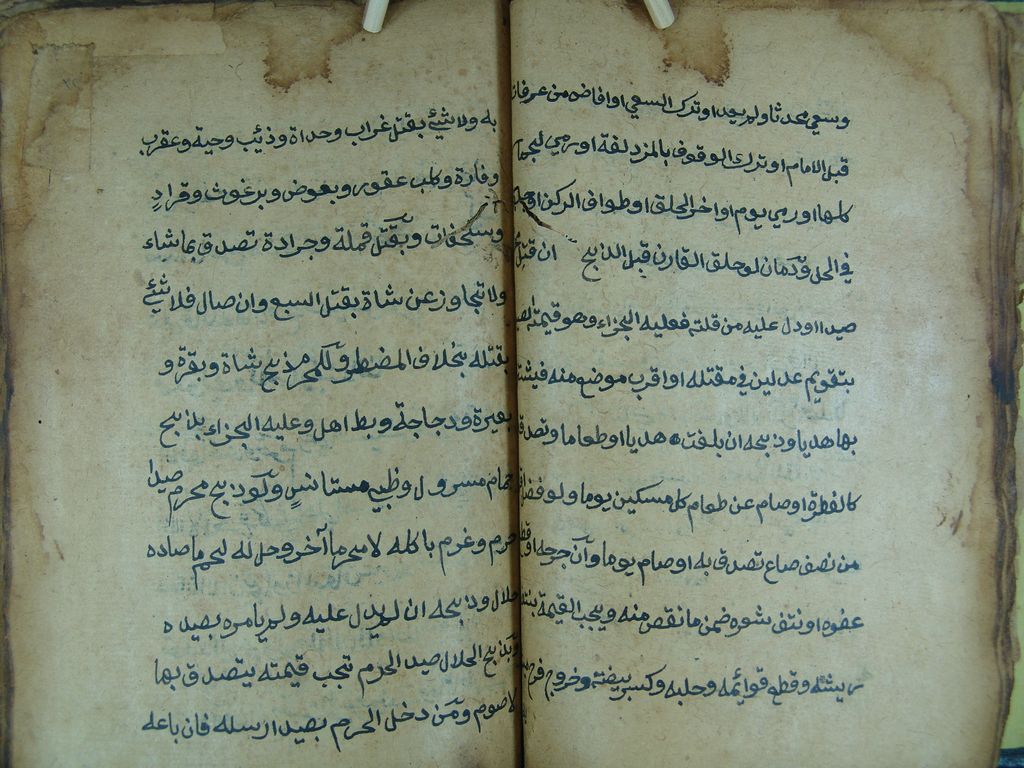 وسعي محدثا ولم يعد او ترك السعي او افاض من عرفات
قبل الامام او ترك الوقوف بالمزدلفة او رمي الجمار
كلها او رمي يوم او اخر الحلق او طواف الركن او حلق
في الحل ودمان لو حلق القارن قبل الذبح ان قتل
صيدا او دل عليه من قتله فعليه الجزاء وهو قيمة الصيد
بتقويم عدلين في مقتله او اقرب موضع منه فيشتري
بها هديا وذبحه ان بلغت هديا او طعاما وتصدق
كالفطرة او صام عن طعام كل مسكين يوما ولو فضل
من نصف صاع تصدق به او صام يوما وان جرحه او قطع
عضوه او نتف شعره ضمن ما نقص منه ويجب القيمة بنتف
ريشه وقطع قوائمه وحلبه وكسر بيضه وخروج فرخ
به ولا شئ بقتل غراب وحداة وذئب وحية وعقرب
وفارة وكلب عقور وبعوض وبرغوث وقراد
وسلحفات وبقتل قملة وجرادة تصدق بما شاء
ولا تجاوز عن شاة بقتل السبع وان صال فلا شئ
بقتله بخلاف المضطر وللمحرم ذبح شاة وبقرة و
بعيرة ودجاجة وبط اهل وعليه الجزاء بذبح
حمام مسرول وظبي مستانس ولو ذبح محرم صيدا
حرم وغرم باكله لا محرما آخر وحل له لحم ما صاده
حلال وذبحه ان لم يدل عليه ولم يامره بصيده
وبذبح الحلال صيد الحرم تجب قيمته يتصدق بها
لا صوم ومن دخل الحرم بصيد ارسله فان باعه